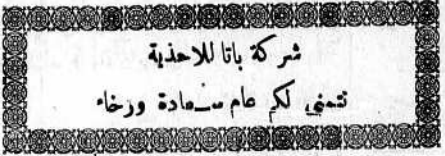 شركة باتا للاحذية
تتمنى لكم عام سعادة ورخاء